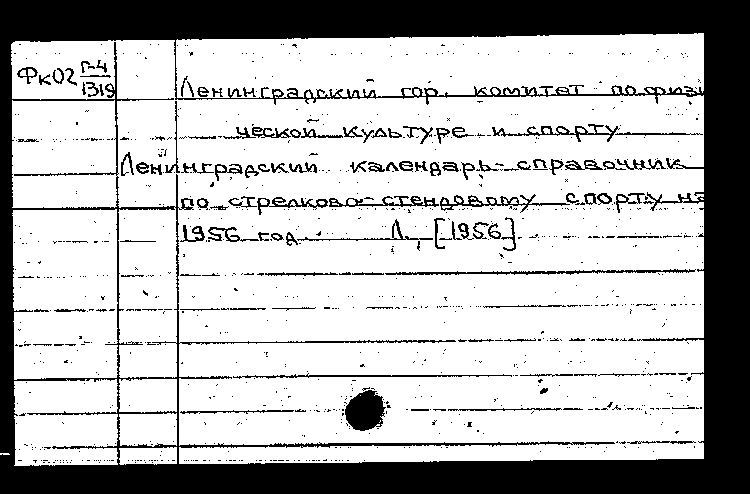 ФкО2 Г-4
1319
Ленинградский гор. комитет по физи
ческой культуре и спорту
Ленинградский календарь-справочник
по стрелково-стендовому спорту на
1956 год. Л., [1956]